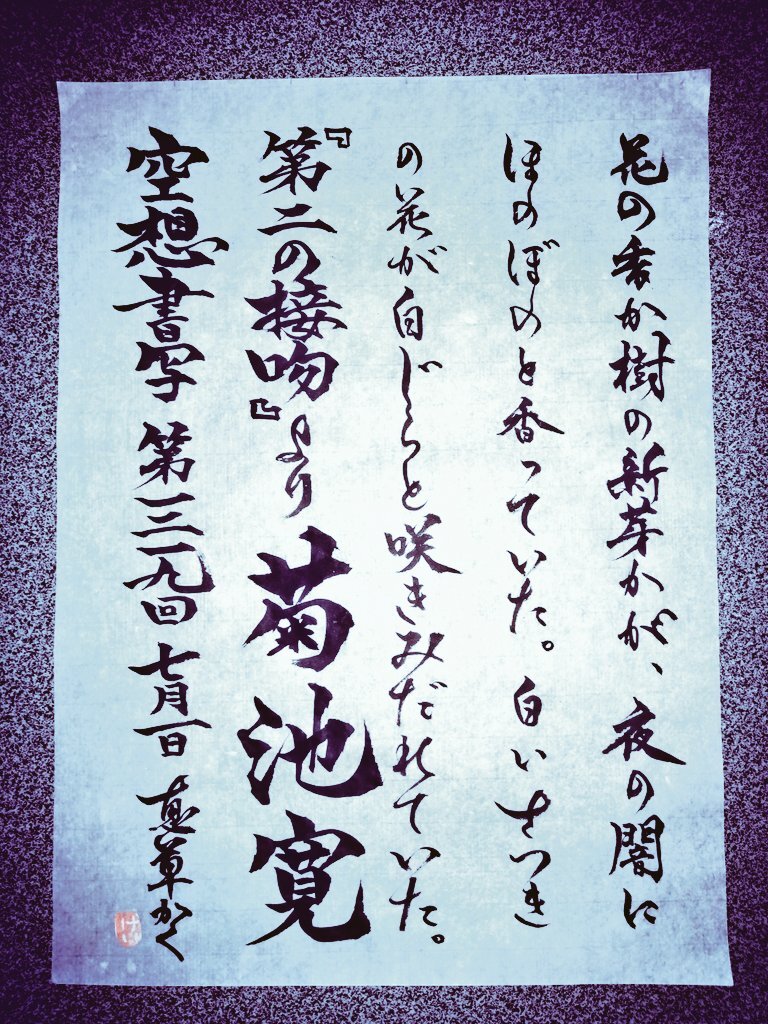 花の香か樹の新芽かが、夜の闇に
ほのぼのと香っていた。白いさつき
の花が白じらと咲きみだれていた。
『第二の接吻』より 菊池寛
空想書写 第一三一九回 七月一日 恵草かく